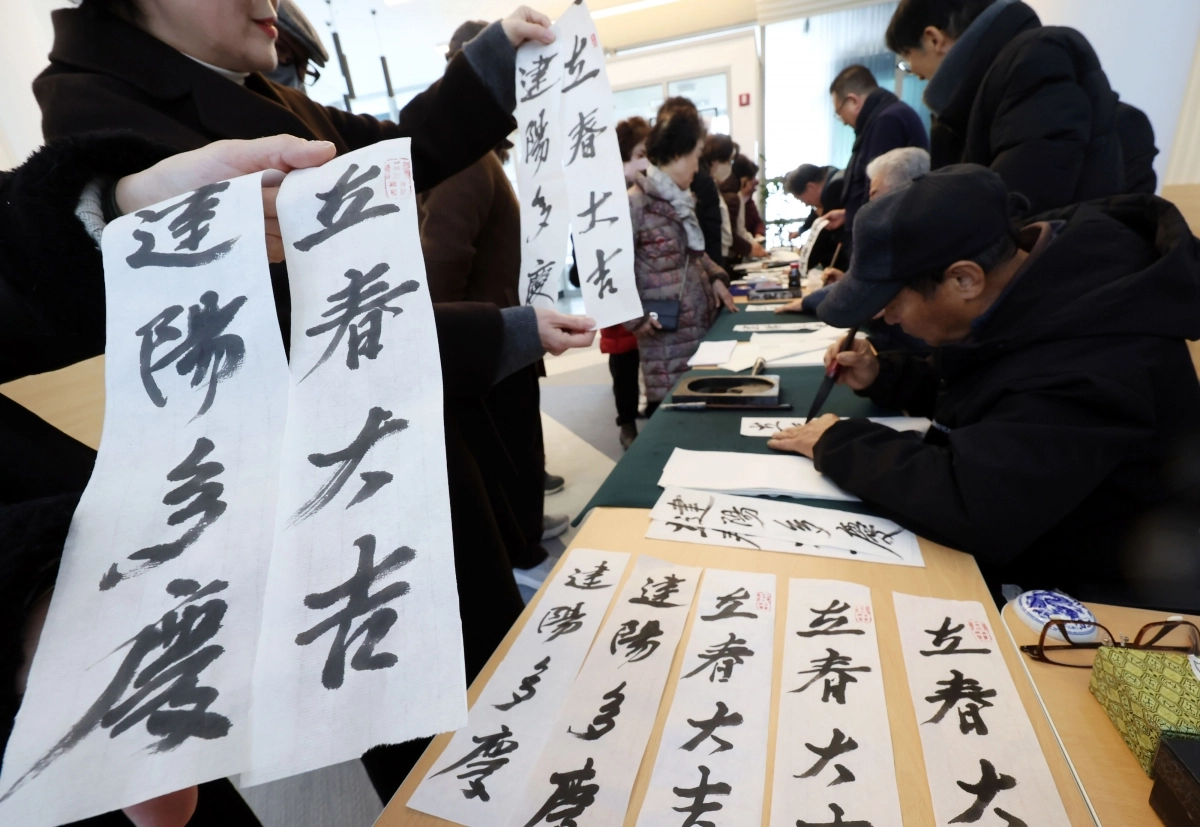 立春大吉
建陽多慶
立春大吉
建陽多慶
建陽多慶
立春大
立春大
立春大吉
建陽多慶
建陽多慶